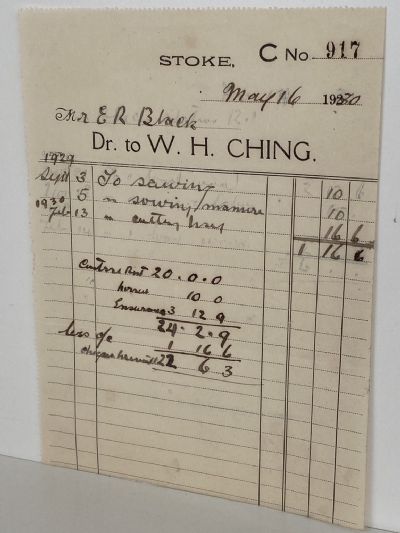 STOKE, C No. 917
May 16 1930
Mr E R Black
Dr. to W. H. CHING.
1929
Sept 3 To sowing 10 6
5 " sowing/manure 10
1930
Feb 13 " cutting 16 6
1 16 6
Rent 20 . 0 . 0
horses 10 0
3 12 9
24 . 2 . 9
less a/c 1 16 6
Cheque herewith 22 6 3